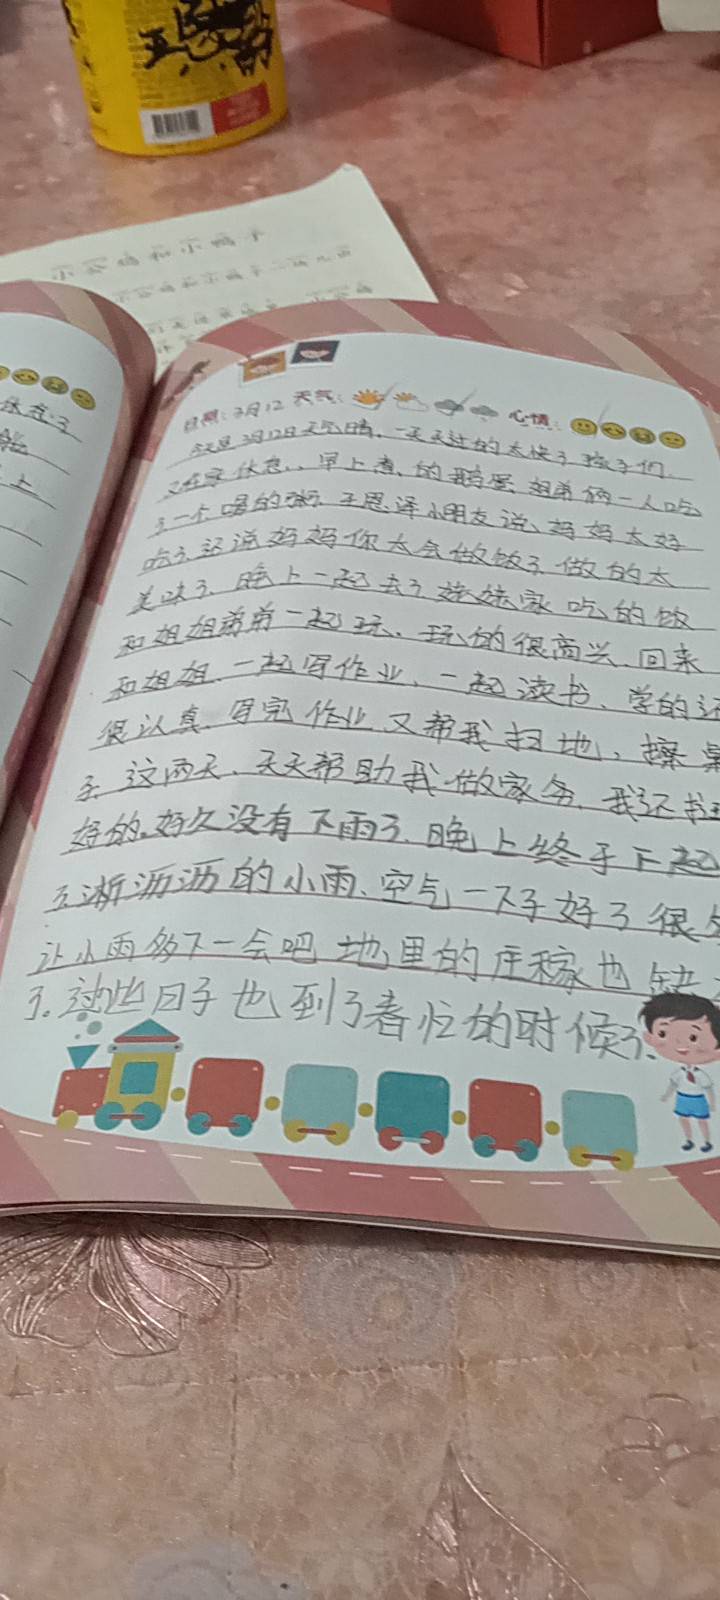 五 的
小公鸡和小鸭子
小公鸡和小鸭子一块儿出
日期:3月12 天气: 心情:
今天是3月12日天气晴,一天天过的太快了孩子们
又在家休息,,早上煮的鹅蛋姐弟俩一人吃
了一个喝的粥.王思泽小朋友说、妈妈太好
吃了.还说妈妈你太会做饭了做的太
美味了.晚上一起去了妹妹家吃的饭
和姐姐弟弟一起玩.玩的很高兴.回来
和姐姐.一起写作业、一起读书、学的还
很认真.写完作业又帮我扫地,擦桌
子.这两天、天天帮助我做家务.我还挺
好的.好久没有下雨了.晚上终于下起
了淅沥沥的小雨、空气一下子好了很多
让小雨多下一会吧地里的庄稼也缺
了.过些日子也到了春忙的时候了.
休息了
上